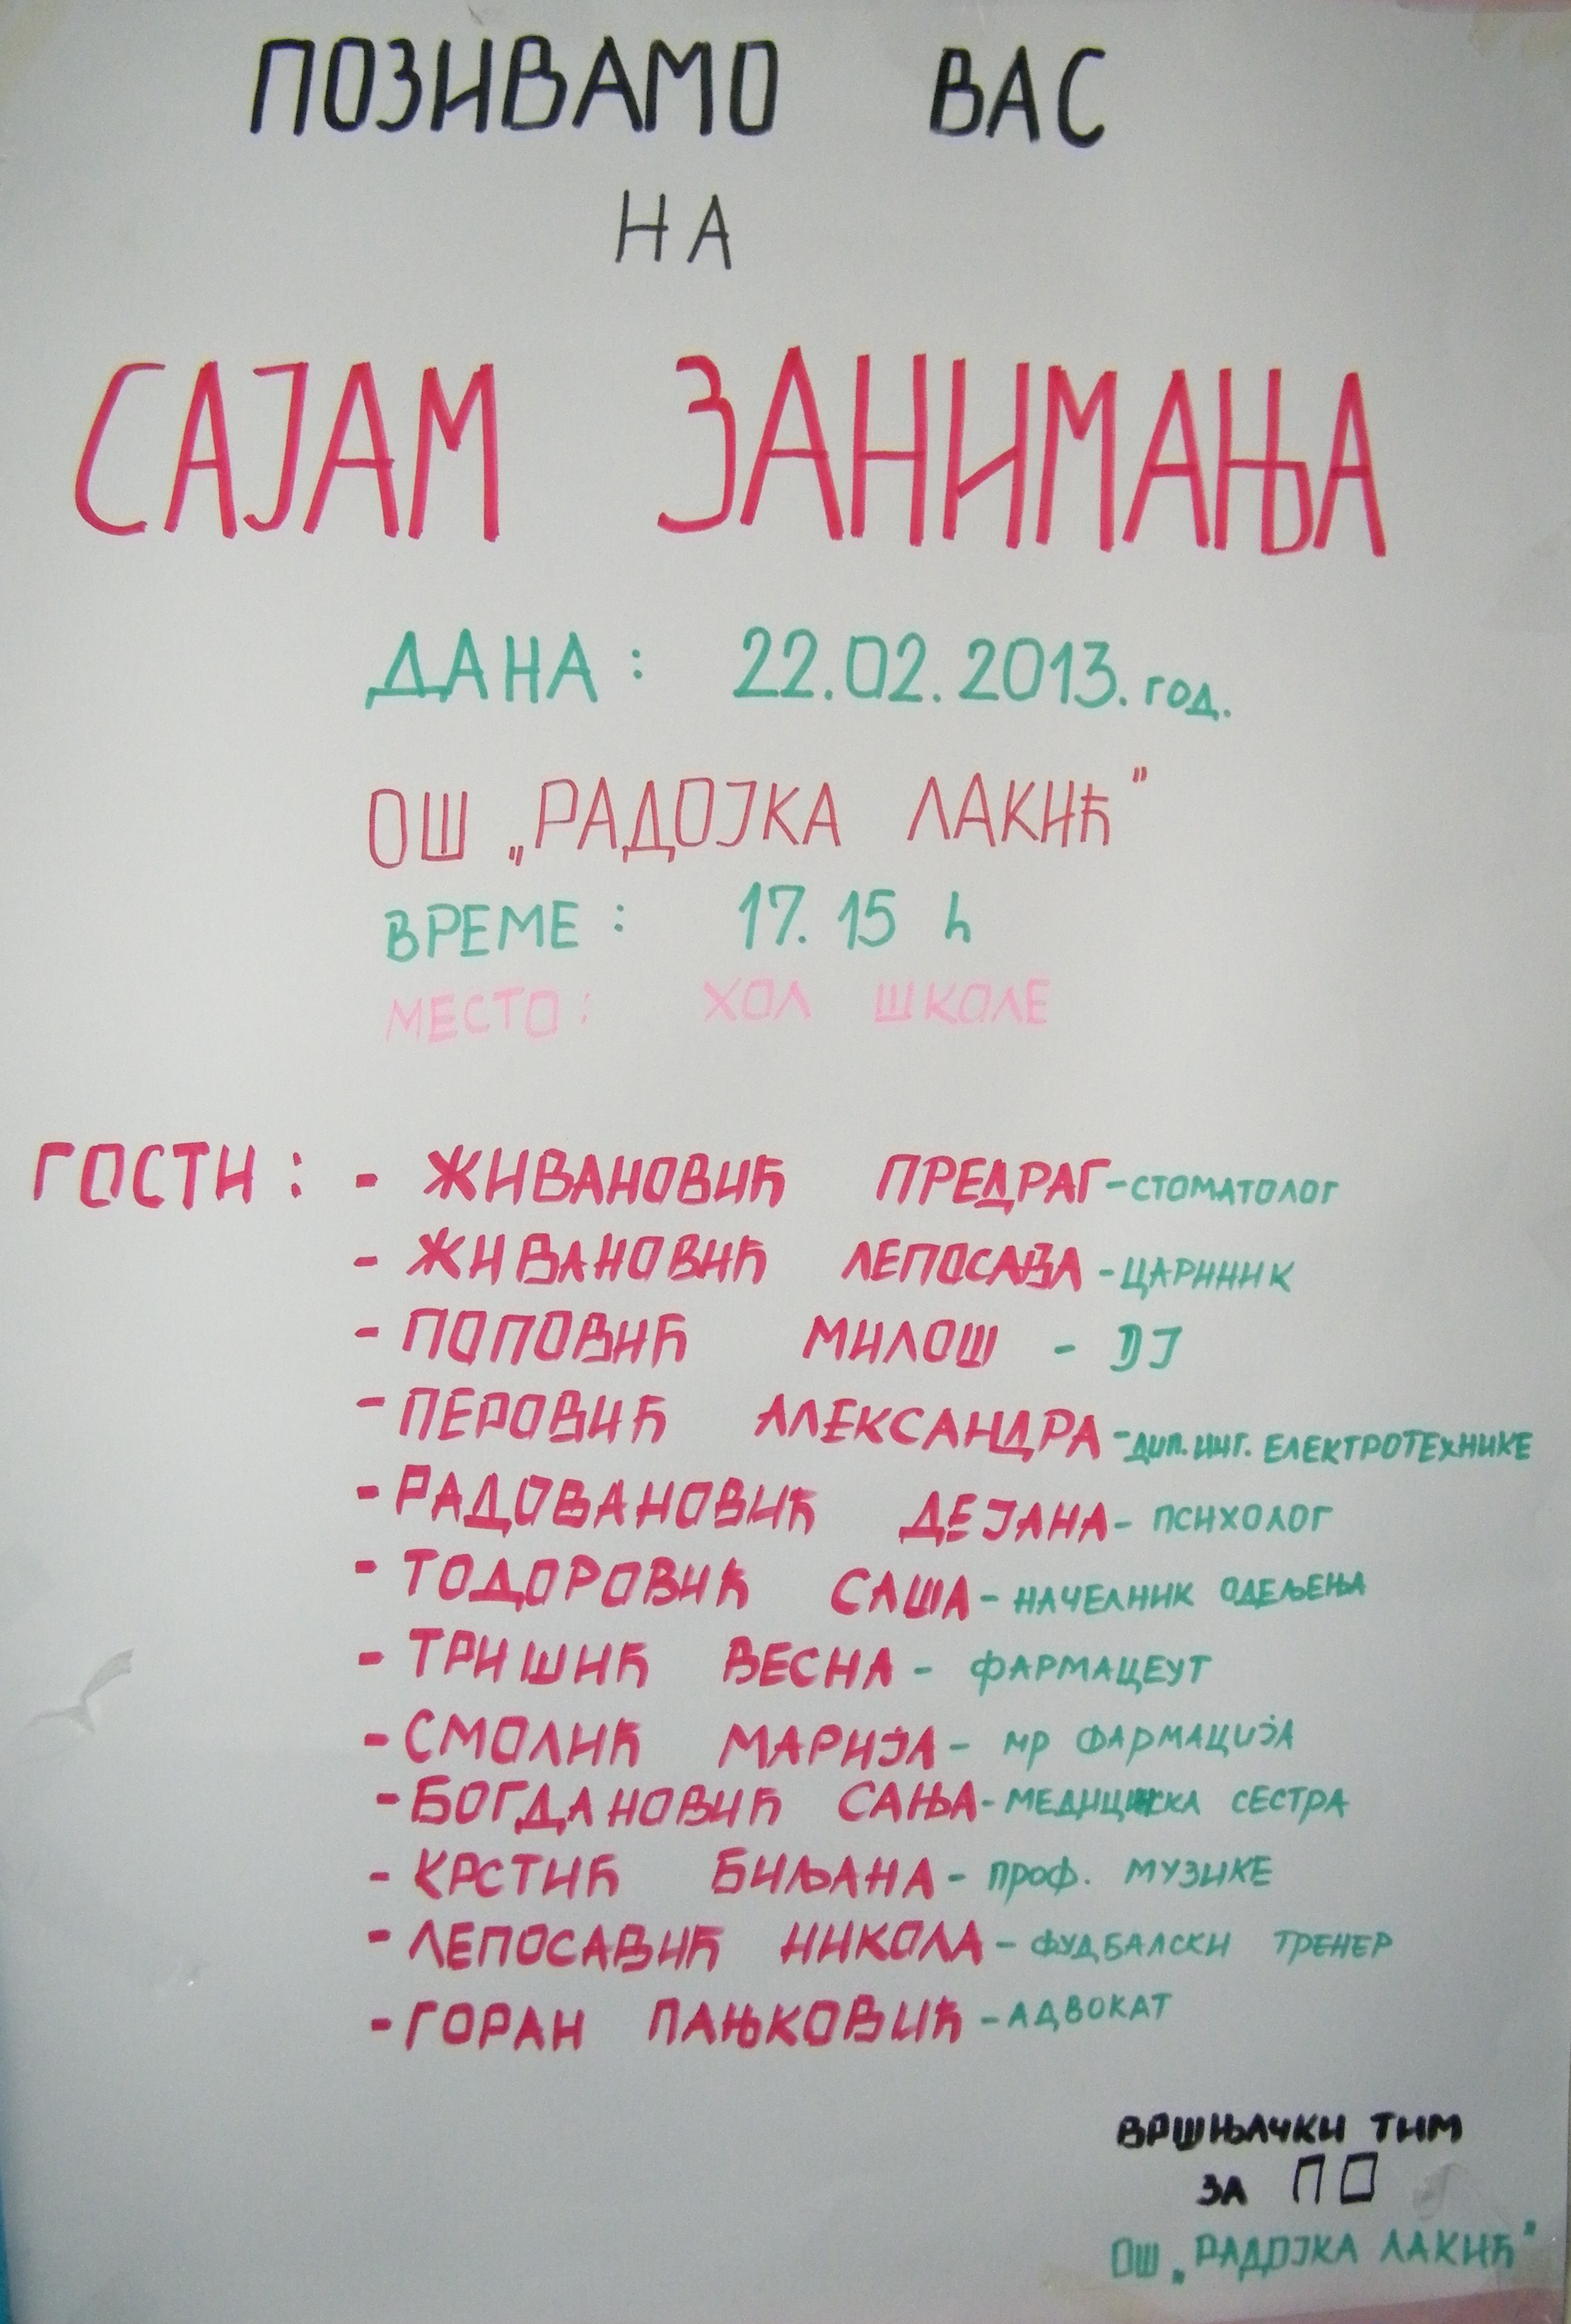 ПОЗИВАМО ВАС
НА
САЈАМ ЗАНИМАЊА
ДАНА: 22.02.2013. год.
ОШ „РАДОЈКА ЛАКИЋ"
ВРЕМЕ: 17.15 h
МЕСТО: ХОЛ ШКОЛЕ
ГОСТИ: - ЖИВАНОВИЋ ПРЕДРАГ - СТОМАТОЛОГ
- ЖИВАНОВИЋ ЛЕПОСАВА - ЦАРИНИК
- ПОПОВИЋ МИЛОШ - DJ
- ПЕРОВИЋ АЛЕКСАНДРА - ДИП. ИНГ. ЕЛЕКТРОТЕХНИКЕ
- РАДОВАНОВИЋ ДЕЈАНА - ПСИХОЛОГ
- ТОДОРОВИЋ САША - НАЧЕЛНИК ОДЕЉЕЊА
- ТРИШИЋ ВЕСНА - ФАРМАЦЕУТ
- СМОЛИЋ МАРИЈА - мр ФАРМАЦИЈА
- БОГДАНОВИЋ САЊА - МЕДИЦИНСКА СЕСТРА
- КРСТИЋ БИЉАНА - проф. МУЗИКЕ
- ЛЕПОСАВИЋ НИКОЛА - ФУДБАЛСКИ ТРЕНЕР
- ГОРАН ПАЊКОВИЋ - АДВОКАТ
ВРШЊАЧКИ ТИМ
ЗА ПО
ОШ „РАДОЈКА ЛАКИЋ"